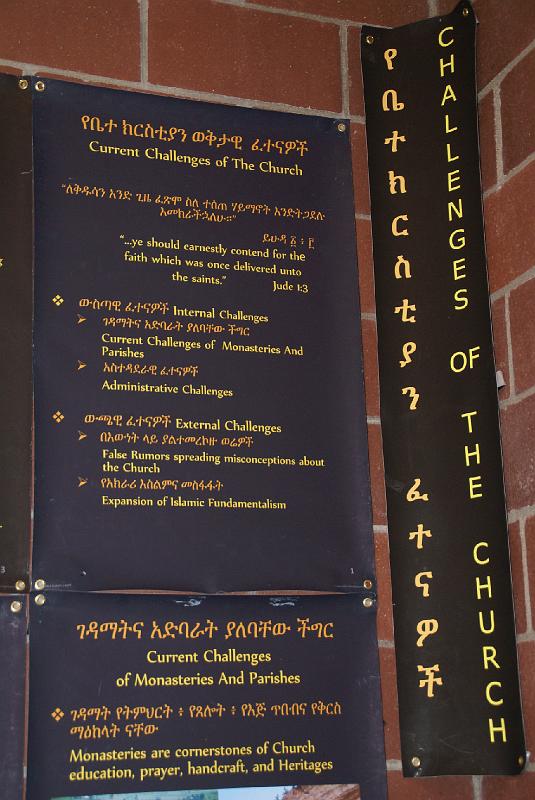 የቤተ ክርስቲያን ወቅታዊ ፈተናዎች
Current Challenges of The Church
“ለቅዱሳን አንድ ጊዜ ፈጽሞ ስለ ተሰጠ ሃይማኖት እንድትጋደሉ
እመክራችኋለሁ።”
ይሁዳ ፩ ፥ ፫
“...ye should earnestly contend for the
faith which was once delivered unto
the saints.” Jude 1:3
❖ ውስጣዊ ፈተናዎች Internal Challenges
➢ ገዳማትና አድባራት ያለባቸው ችግር
Current Challenges of Monasteries And
Parishes
➢ አስተዳደራዊ ፈተናዎች
Administrative Challenges
❖ ውጫዊ ፈተናዎች External Challenges
➢ በእውነት ላይ ያልተመረኮዙ ወሬዎች
False Rumors spreading misconceptions about
the Church
➢ የአክራሪ እስልምና መስፋፋት
Expansion of Islamic Fundamentalism
1
ገዳማትና አድባራት ያለባቸው ችግር
Current Challenges
of Monasteries And Parishes
❖ ገዳማት የትምህርት ፥ የጸሎት ፥ የእጅ ጥበብና የቅርስ
ማዕከላት ናቸው
Monasteries are cornerstones of Church
education, prayer, handcraft, and Heritages
የቤተክርስቲያን ፈተናዎች
CHALLENGES OF THE CHURCH
3